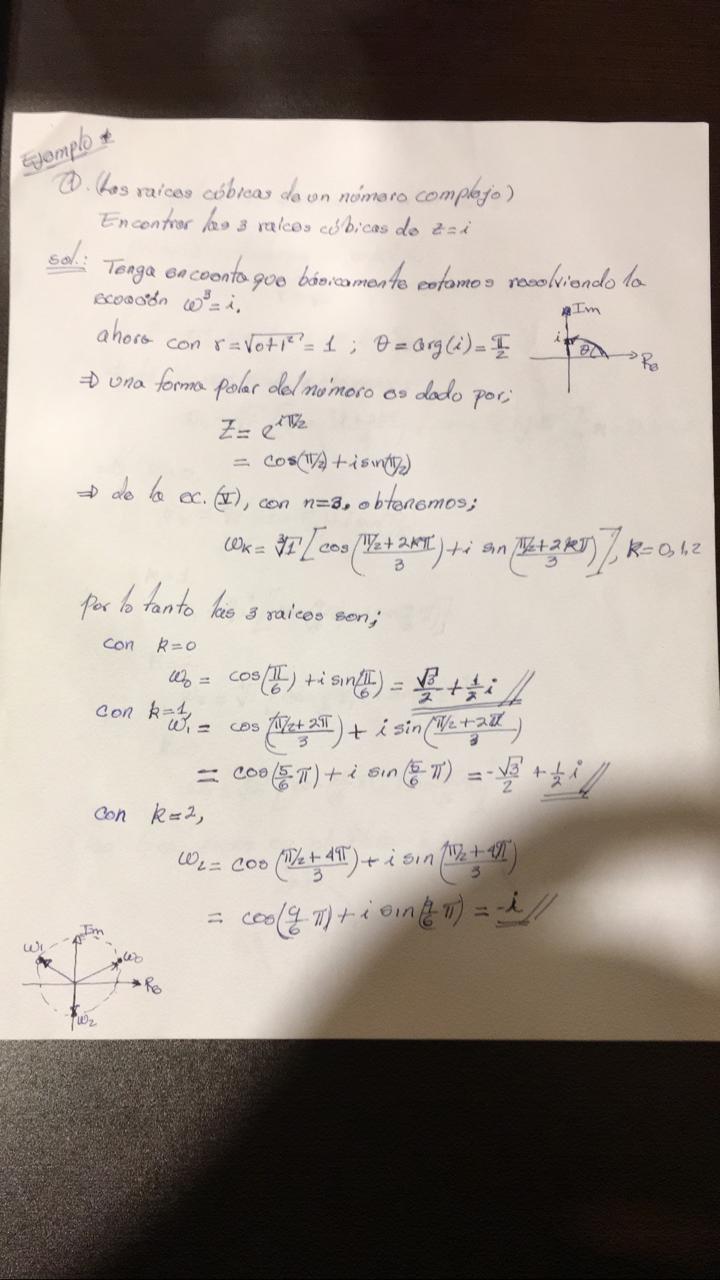 Ejemplo
1. (Las raices cúbicas de un número complejo)
Encontrar las 3 raices cúbicas de z=i
sol.: Tenga en cuenta que básicamente estamos resolviendo la
ecuación ω³=i.
Im
ahora con r=√(0+1²)=1 ; θ=arg(i)=π/2
i
θ
Re
⇒ una forma polar del número es dado por;
Z= e^(iπ/2)
= cos(π/2)+i sin(π/2)
⇒ de la ec. (V), con n=3, obtenemos;
ωₖ= ∛1 [cos((π/2+2kπ)/3)+i sin((π/2+2kπ)/3)], k=0,1,2
por lo tanto las 3 raices son;
con k=0
ω₀ = cos(π/6)+i sin(π/6) = √3/2 + 1/2 i //
con k=1,
ω₁ = cos((π/2+2π)/3) + i sin((π/2+2π)/3)
= cos(5/6 π)+i sin(5/6 π) = -√3/2 + 1/2 i //
con k=2,
ω₂= cos((π/2+4π)/3)+i sin((π/2+4π)/3)
= cos(9/6 π)+i sin(9/6 π) = -i //
Im
ω₁
ω₀
Re
ω₂